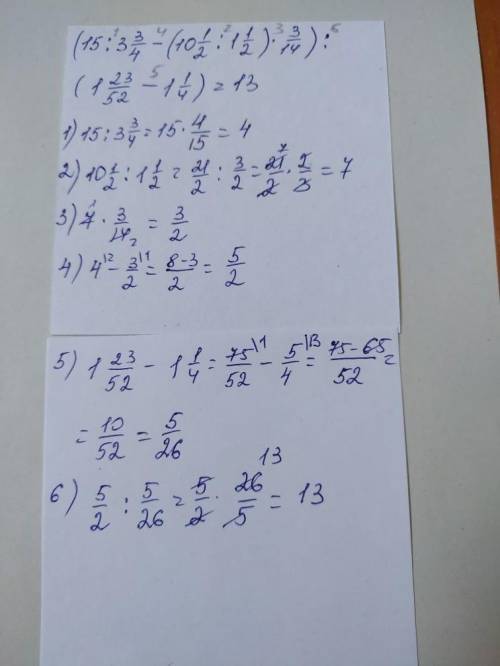 (15 :¹ 3 3/4 -⁴ (10 1/2 :² 1 1/2) ·³ 3/14) :⁶
(1 23/52 -⁵ 1 1/4) = 13
1) 15 : 3 3/4 = 15 · 4/15 = 4
2) 10 1/2 : 1 1/2 = 21/2 : 3/2 = 21⁷/2 · 2/3 = 7
3) 7¹ · 3/14₂ = 3/2
4) 4\² - 3/2\¹ = 8-3/2 = 5/2
5) 1 23/52 - 1 1/4 = 75/52\¹ - 5/4\¹³ = 75-65/52 =
= 10/52 = 5/26
6) 5/2 : 5/26 = 5/2 · 26¹³/5 = 13